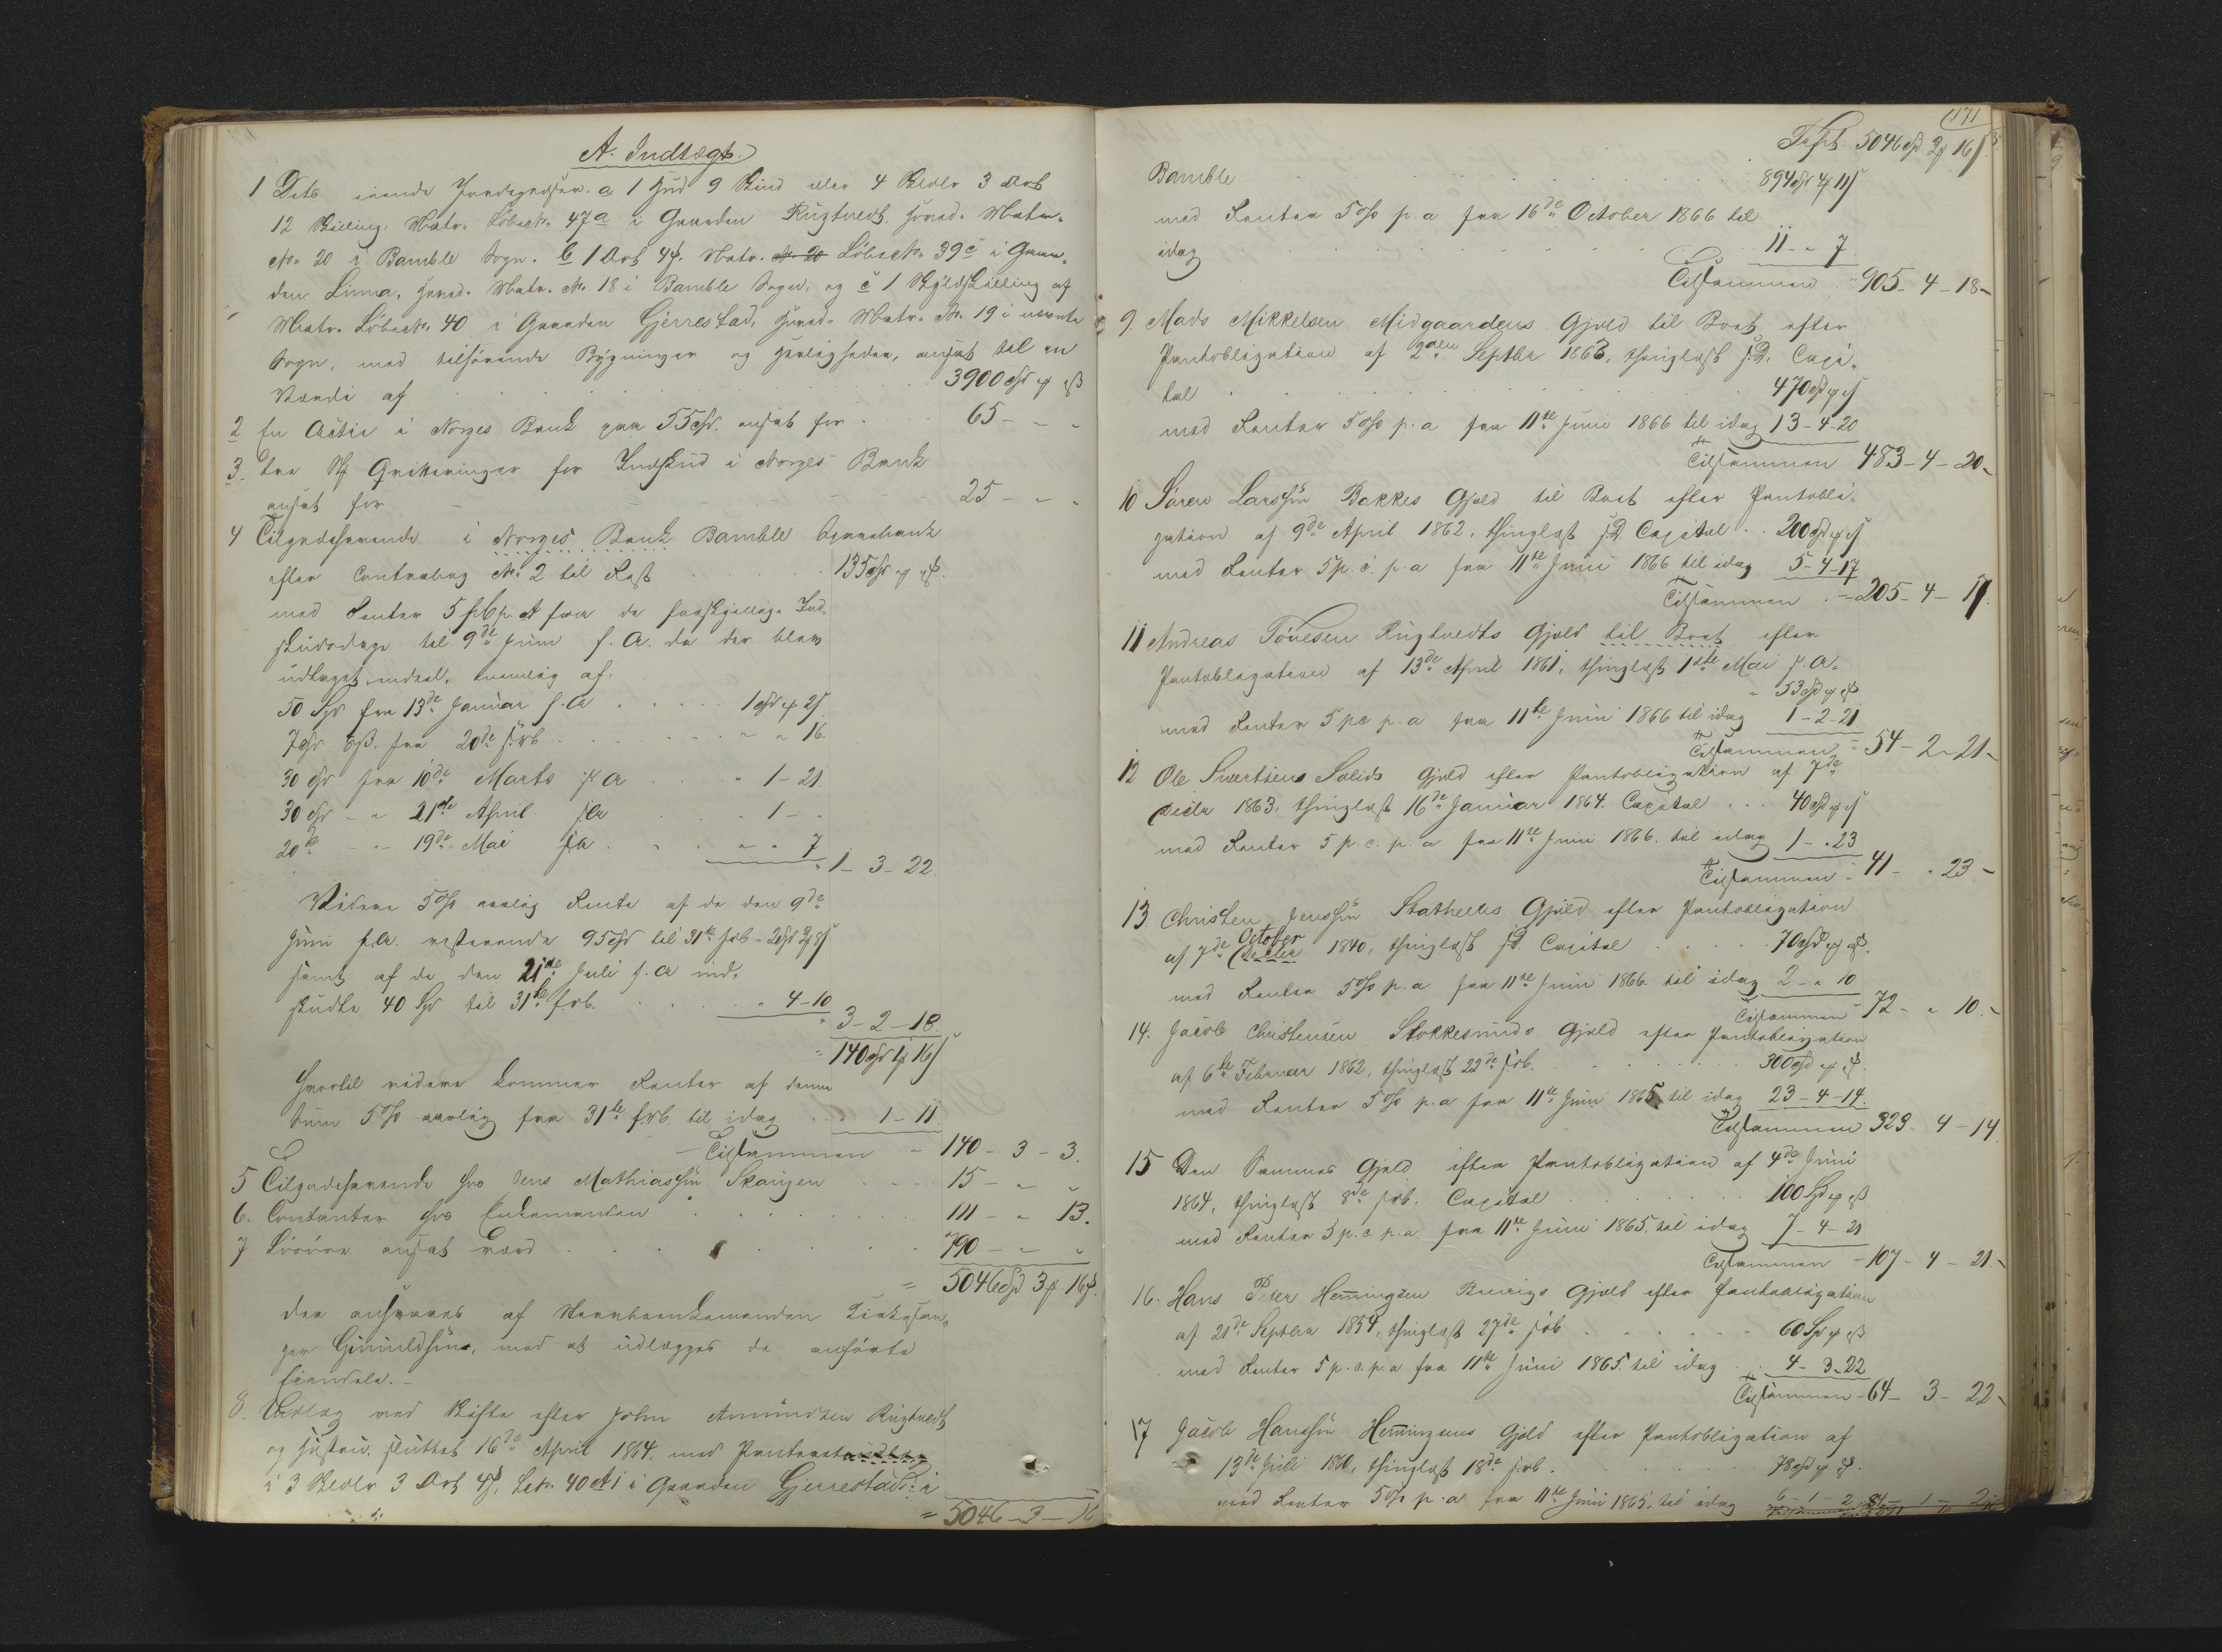 A. Indtægt.
1 Dets eiende Jordegodser. a 1 Hud 9 Skind eller 4 Skdlr 3 Ort
12 Skilling. Matr. Løbenr. 47a i Gaarden Rugtvedt hoved. Matr.
No. 20 i Bamble Sogn. b 1 Ort 4 s. Matr. Løbenr. 39c i Gaar-
den Linna, hoved. Matr. No. 18 i Bamble Sogn, og c 1 Skyldskilling af
Matr. Løbenr. 40 i Gaarden Gjerrestad, hoved. Matr. No. 19 i nævnte
Sogn, med tilhørende Bygninger og Herligheder, ansat til en
Værdi af 3900 Spd
2 En Actie i Norges Bank paa 55 Spd. ansat for 65 - - -
3. tre Qvitteringer for Indskud i Norges Bank
ansat for 25 - - -
4 Tilgodehavende i Norges Bank Bamble Sparebank
efter Contrabog No. 2 til Rest 135 Spd
med Renter 5 pC p. A fra de forskjellige Ind-
skudsdage til 9de Juni f. A. da der blev
udtaget endeel, nemlig af.
50 Spd fra 13de Januar f. A 1 Spd 2 s
7 Spd fra 20de s. M. " " 16.
30 Spd fra 10de Marts f. A " 1 - 21
30 Spd - " 21de April f. A " 1 - "
20 - " 19de Mai f. A " " 7
" 1 - 3 - 22.
Videre 5 % aarlig Rente af de den 9de
Juni f. A. resterende 95 Spd til 31te
samt af de den 21de Juli f. A ind-
skudte 40 Spd til 31te " 4 - 10
" 3 - 2 - 18.
= 140 Spd 1 16 s
Hvortil videre kommer Renter af denne
Sum 5 % aarlig fra 31te til idag " 1 - 11.
Tilsammen = 140 - 3 - 3.
5 Tilgodehavende hos Jens Mathiassøn Skaugen 15 - " "
6. Contanter hos Enkemanden 111 - " 13.
7 Løsøre ansat værd 790 - " "
= 5046 Spd 3 16 s.
der ansvares af Enkemanden
med at udlægges de anførte
Eiendele. -
8. Udlæg ved Skifte efter John Amundsen Rugtvedt
og Hustru, sluttet 16de April 1864, med Panteret
i 3 Skdlr 3 Ort 4 s. Løbenr. 40 i Gaarden Gjerrestad i
= 5046 - 3 - 16
171
Trspt. 5046 Spd 3 16 s
Bamble 894 Spd 4 11 s
med Renter 5 % p. a fra 16de October 1866 til
idag 11 - " 7
Tilsammen = 905 - 4 - 18 -
9. Mads Mikkelsen Midgaardens Gjæld til Boet efter
Pantobligation af 2den Septbr 1863, thinglæst s. D. Capi-
tal 470 Spd
med Renter 5 % p. a fra 11te Juni 1866 til idag 13 - 4 - 20
Tilsammen 483 - 4 - 20 -
10 Søren Larssøn Bakkes Gjæld til Boet efter Pantobli-
gation af 9de April 1862, thinglæst s. D. Capital 200 Spd
med Renter 5 p. c. p. a fra 11te Juni 1866 til idag 5 - 4 - 17
Tilsammen = 205 - 4 - 17.
11 Andreas Tønesen Rugtvedts Gjæld til Boet efter
Pantobligation af 13de April 1861, thinglæst 1ste Mai s. A.
= 53 Spd
med Renter 5 pc p. a fra 11te Juni 1866 til idag 1 - 2 - 21
Tilsammen = 54 - 2 - 21 -
12 Ole Sivertsens Solids Gjæld efter Pantobligation af 7de
Decbr 1863, thinglæst 16de Januar 1864. Capital 40 Spd
med Renter 5 p. c. p. a fra 11te Juni 1866 til idag 1 - " 23
Tilsammen = 41 - " 23 -
13. Christen Jenssøn Stathelles Gjæld efter Pantobligation
October
af 7de Decbr 1840, thinglæst s. D. Capital 70 Spd
med Renter 5 % p. a fra 11te Juni 1866 til idag 2 - " 10
Tilsammen = 72 - " 10 -
14. Jacob Christensen Stokkesunds Gjæld efter Pantobligation
af 6te Februar 1862, thinglæst 22de 300 Spd
med Renter 5 % p. a fra 11te Juni 1865 til idag 23 - 4 - 14.
Tilsammen 323 - 4 - 14
15 Den Sammes Gjæld efter Pantobligation af 4de Juni
1864, thinglæst 8de Capital 100 Spd
med Renter 5 p. c p. a fra 11te Juni 1865 til idag 7 - 4 - 21
Tilsammen = 107 - 4 - 21 -
16. Hans Peter Hemingsen Gjæld efter Pantobligation
af 21de Septbr 1854, thinglæst 27de 60 Spd
med Renter 5 p. c. p. a fra 11te Juni 1865 til idag 4 - 3 - 22
Tilsammen = 64 - 3 - 22 -
17 Jacob Hanssøn Hemingsens Gjæld efter Pantobligation af
13de Juli 1860, thinglæst 18de 78 Spd
med Renter 5 % p. a fra 11te Juni 1865 til idag 6 - 1 - 2 84 - 1 - 2